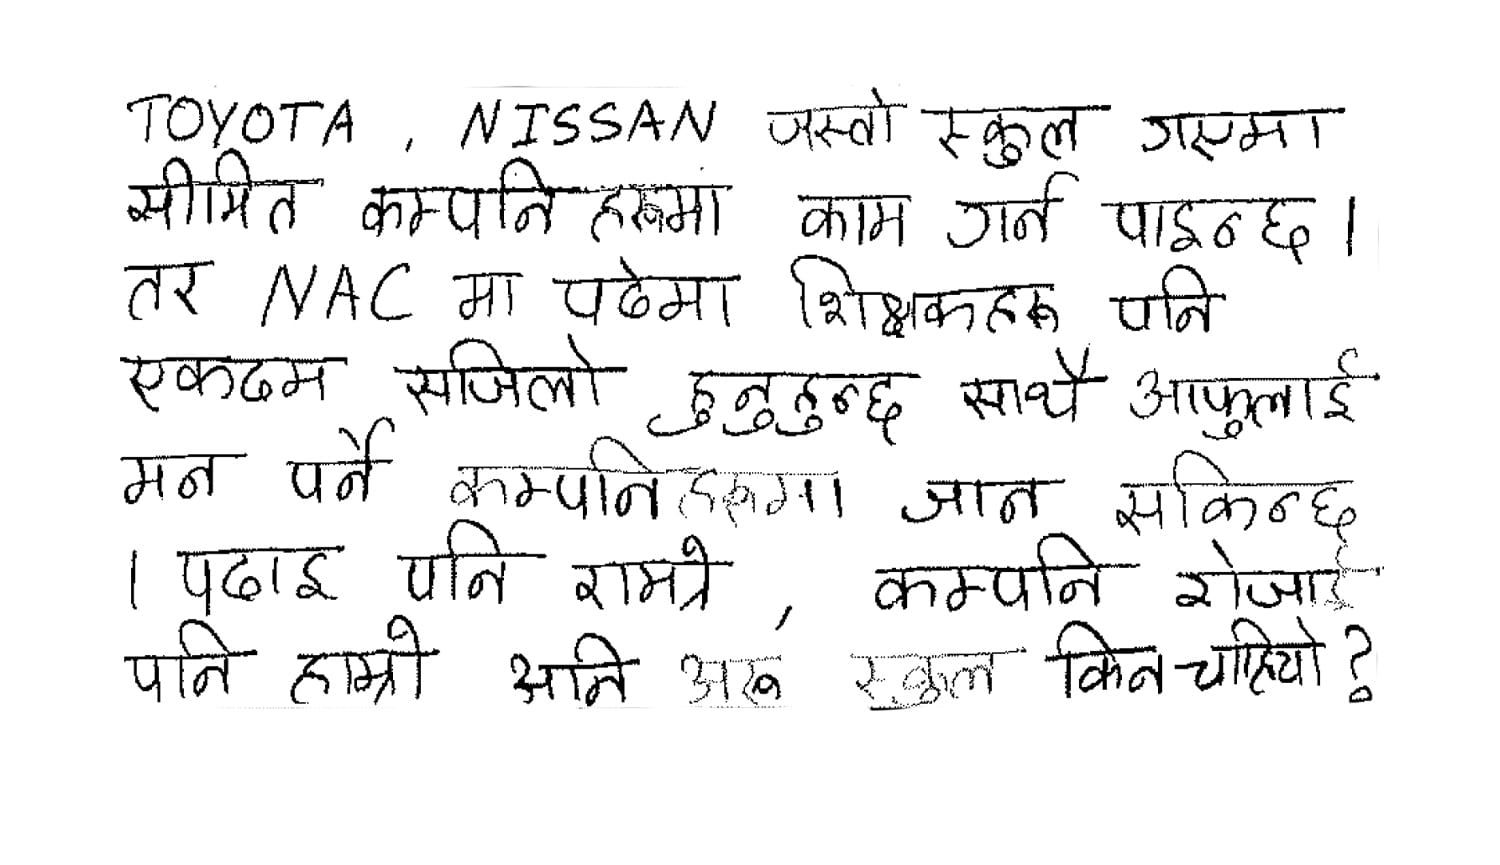 TOYOTA , NISSAN जस्तो स्कुल गएमा
सीमित कम्पनिहरूमा काम गर्न पाइन्छ ।
तर NAC मा पढेमा शिक्षकहरू पनि
एकदम सजिलो हुनुहुन्छ साथै आफुलाई
मन पर्ने कम्पनिहरूमा जान सकिन्छ
। पढाइ पनि राम्रो , कम्पनि रोजाई
पनि हाम्रो अनि अरू स्कुल किन चाहियो ?